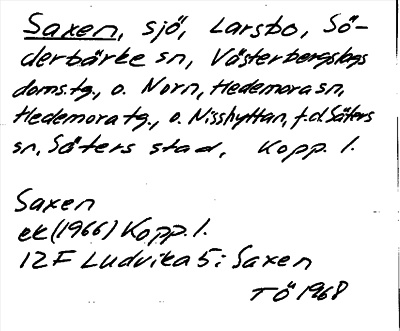 Saxen, sjö, Larsbo, Sö-
derbärke sn, Västerbergslags
doms.tg., o. Norn, Hedemora sn,
Hedemora tg., o. Nisshyttan, f.d. Säters
sn, Säters stad, Kopp. l.
Saxen
ek (1966) Kopp. l.
12F Ludvika 5i Saxen
TÖ 1968